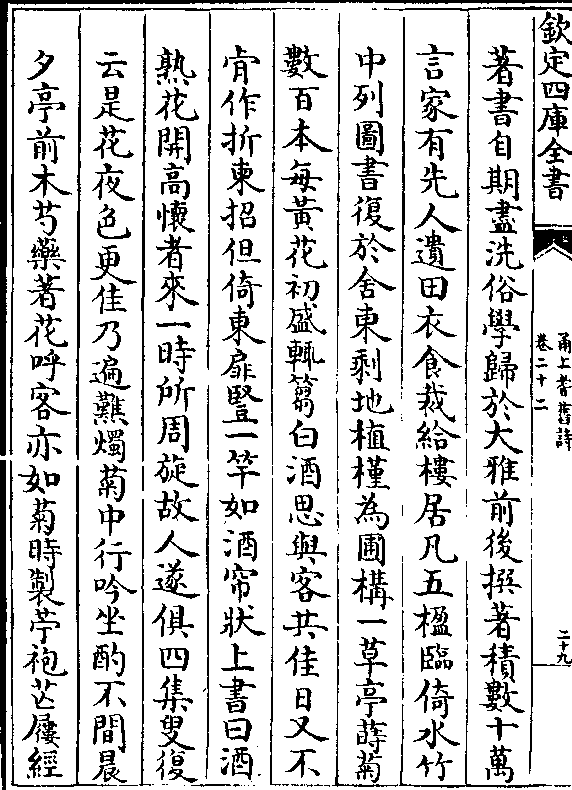 欽定四庫全書
甬上耆舊詩
卷二十二
二十九
著書自期盡洗俗學歸於大雅前後撰著積數十萬
言家有先人遺田衣食裁給樓居凡五楹臨倚水竹
中列圖書復於舍東剩地植槿為圃構一草亭蒔菊
數百本每黃花初盛輒篘白酒思與客共佳日又不
肯作折柬招但倚東扉豎一竿如酒帘狀上書曰酒
熟花開高懷者來一時所周旋故人遂俱四集叟復
云是花夜色更佳乃遍爇燭菊中行吟坐酌不間晨
夕亭前木芍藥著花呼客亦如菊時製苧袍芒屨經